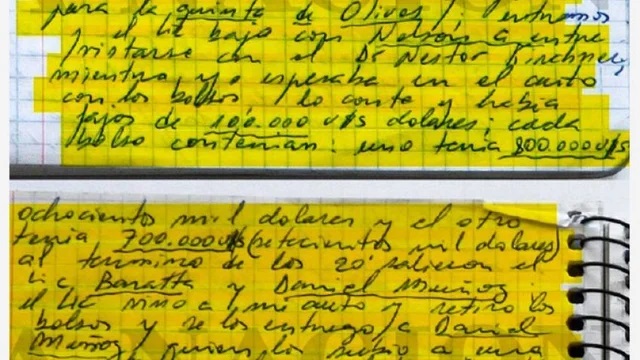 para la quinta de Olivos /: entramos
y el Lic bajo con Nelson a entre
/vistarse con el Dr Nestor Kirchner,
mientras yo esperaba en el auto
con los bolsos / lo conte y habia
fajos de 100.000 u$s dolares; cada
/bolso contenian: uno tenia 800.000 u$s
ochocientos mil dolares y el otro
tenia 700.000 u$s (setecientos mil dolares)
al termino de los 20' salieron el
Lic Baratta y Daniel Muñoz
el Lic vino a mi auto y retiro los
bolsos y se los entrego a Daniel
Muñoz / quien los subio a una